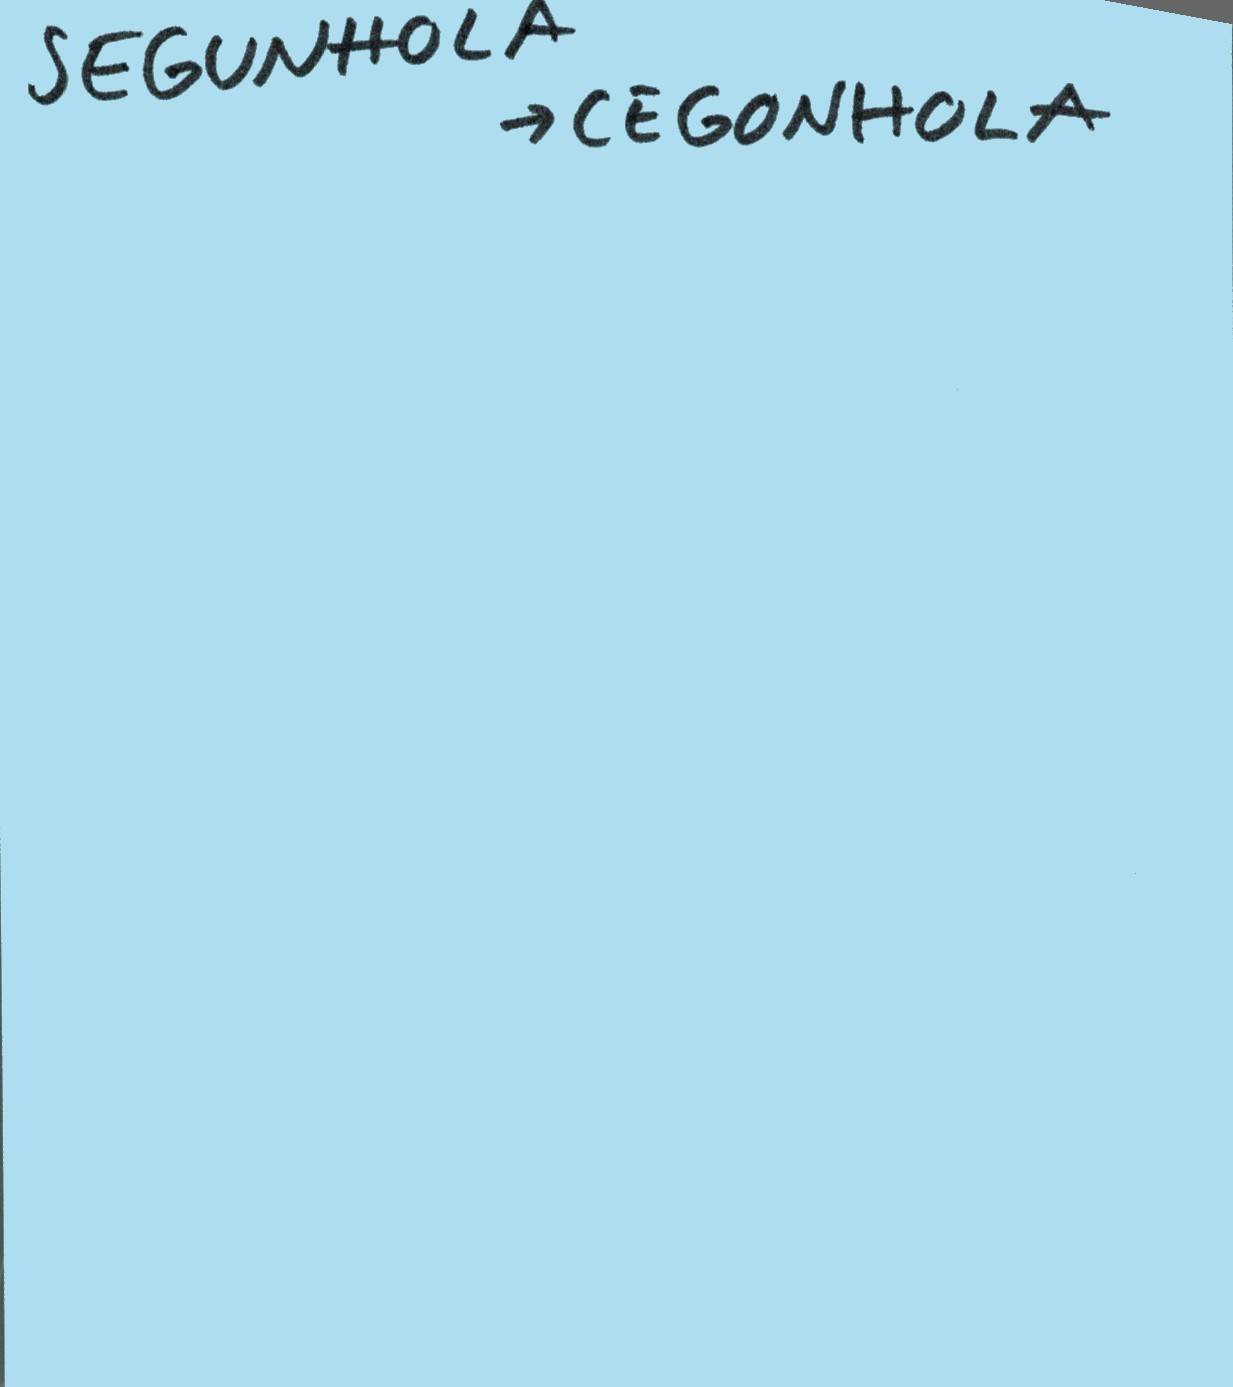 SEGUNHOLA
→ CEGONHOLA